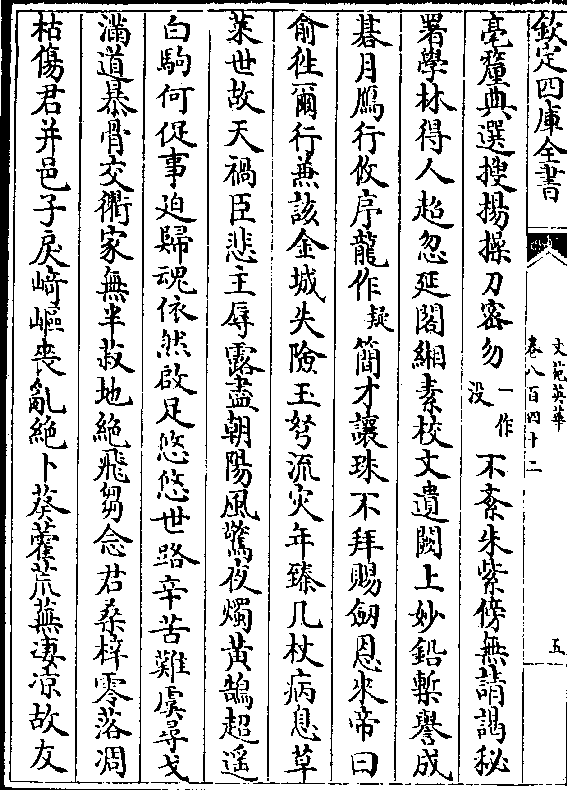 欽定四庫全書
文苑英華
卷八百四十二
五
亳釐典選搜揚操刀密勿一作没不紊朱紫傍無請謁秘
署學林得人超忽延閣緗素校文遺闕上妙鉛槧譽成
朞月鴈行攸序龍作疑簡才讓珠不拜賜劒恩來帝曰
俞徃爾行兼該金城失險玉弩流灾年臻几杖病息草
萊世故天禍臣悲主辱露盡朝陽風驚夜燭黄鵠超遥
白駒何促事迫歸魂依然啟足悠悠世路辛苦難虞尋戈
滿道暴骨交衢家無半菽地絶飛芻念君桑梓零落凋
枯傷君井邑孑戾﨑嶇喪亂絶卜葵藿荒蕪凄凉故友